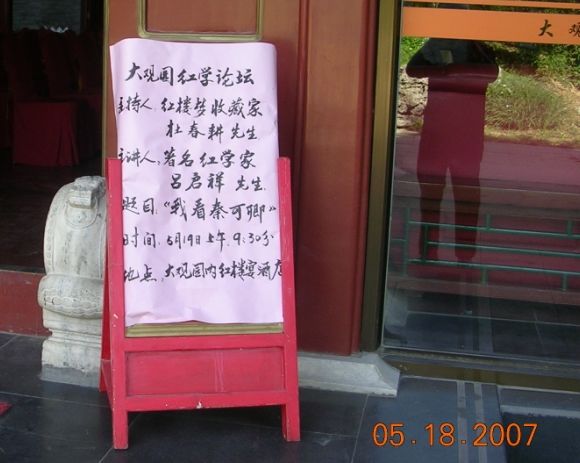 大观园红学论坛
主持人：红楼梦收藏家
杜春耕 先生
主讲人：著名红学家
吕启祥 先生
题目：“我看秦可卿”
时间：5月19日上午9:30分
地点：大观园内红楼宴酒店
大观
05.18.2007